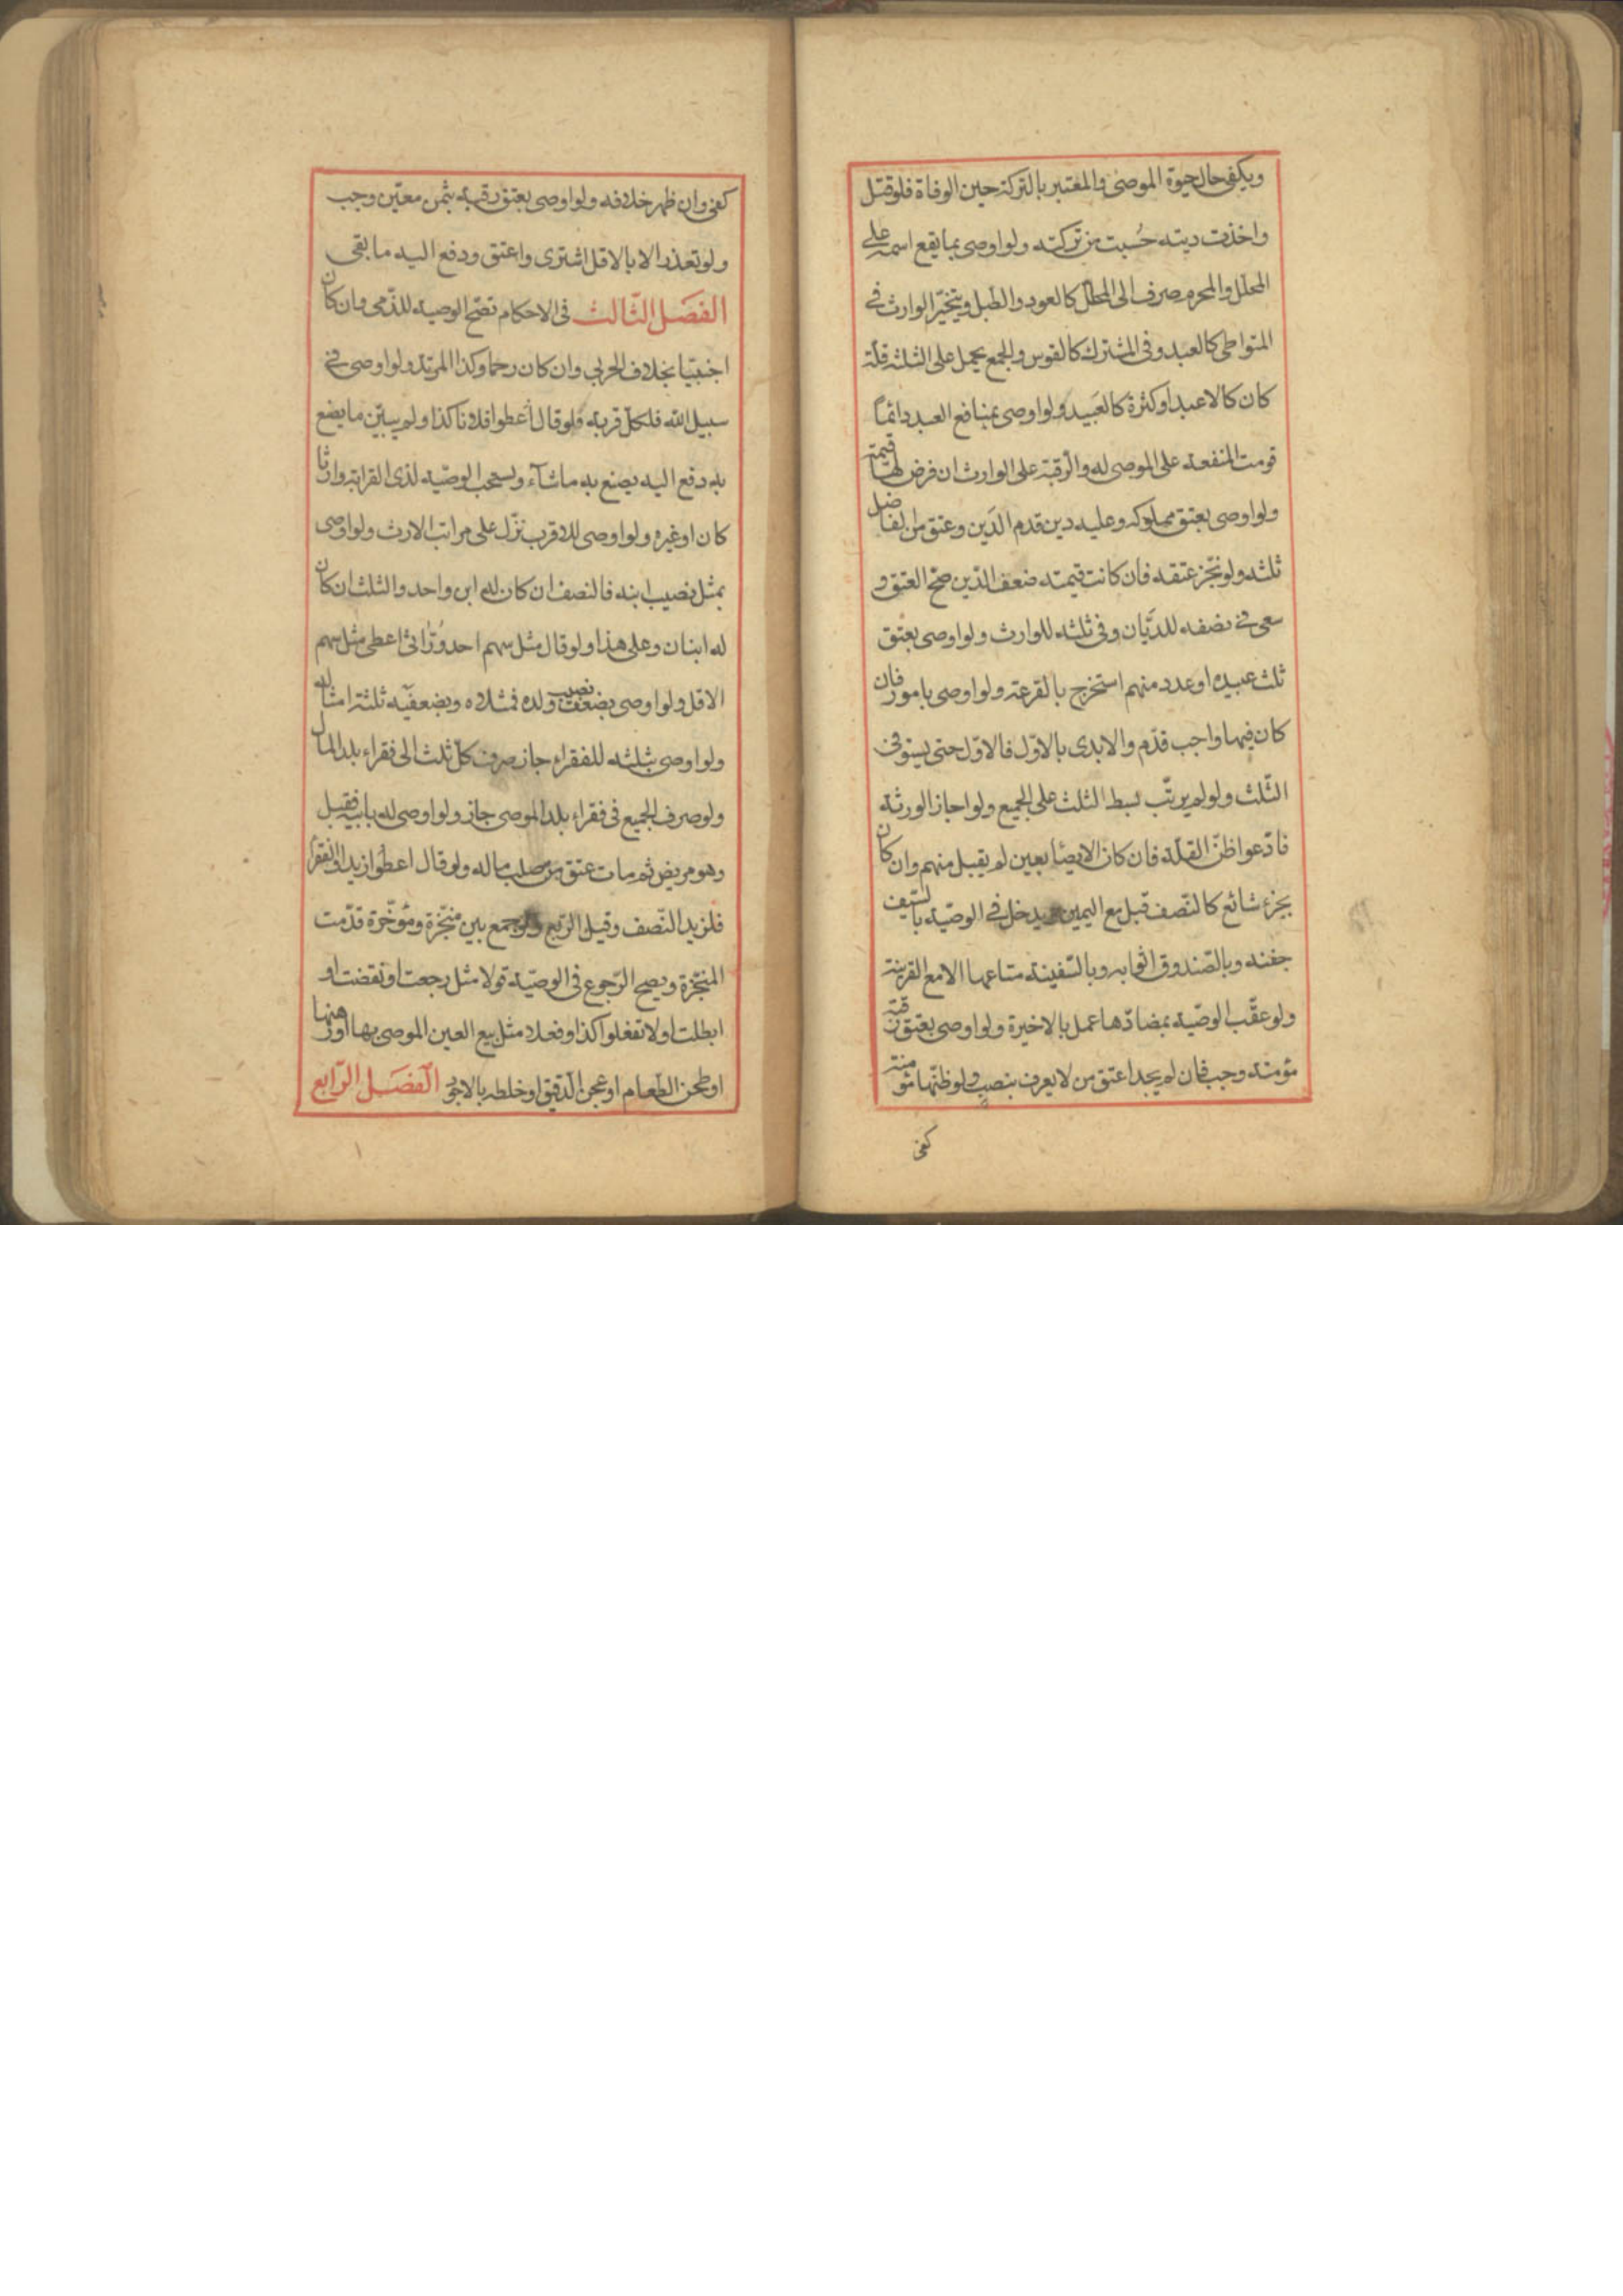 ويكفى حال حيوة الموصى والمعتبر بالتركة حين الوفاة فلو قتل
واخذت ديته حُسبت من تركته ولو اوصى بما يقع اسمه على
المحلل والمحرم صرف الى المحلل كالعود والطبل ويتخيّر الوارث فى
المتواطى كالعبد وفى المشترك كالقوس والجمع يحمل على الثلثة قلّة
كان كالاعبد او كثرة كالعَبيد ولو اوصى بمنافع العبد دائمًا
قومت المنفعة على الموصى له والرّقبة على الوارث ان فرض لها قيمة
ولو اوصى بعتق مملوكه وعليه دين قدم الدَين وعتق من الفاضل
ثلثه ولو نجّز عتقه فان كانت قيمته ضعف الدّين صحّ العتق و
سعى فى نصفه للدَّيّان وفى ثلثه للوارث ولو اوصى بعتق
ثلث عبيده او عدد منهم استخرج بالقرعة ولو اوصى بامور فان
كان فيها واجب قدّم والا بدى بالاوّل فالاوّل حتى يستوفى
الثّلث ولو لم يرتّب بسط الثلث على الجميع ولو اجاز الورثة
فادّعوا ظنّ القلّة فان كان الايصاء بعين لم يقبل منهم وان كان
بجزء شائع كالنّصف قبل مع اليمين ويدخل فى الوصيّة بالسّيف
جفنه وبالصّندوق اثوابه وبالسّفينة متاعها الا مع القرينة
ولو عقّب الوصيّة بمضادّها عمل بالاخيرة ولو اوصى بعتق رقبة
مؤمنة وجب فان لم يجد اعتق من لا يعرف بنصب ولو ظنّها مؤمنة
كفى
كفى وان ظهر خلافه ولو اوصى بعتق رقبة بثمن معيّن وجب
ولو تعذر الا بالاقل اشترى واعتق ودفع اليه ما بقى
الفصَل الثّالث فى الاحكام تصّح الوصية للذّمى وان كان
اجنبيّا بخلاف الحربى وان كان رحما وكذا المرتد ولو اوصى فى
سبيل الله فلكلّ قربة فلو قال اعطوا فلانا كذا ولم يبيّن ما يصنع
به دفع اليه يصنع به ما شآء ويستحب الوصيّة لذى القرابة وارثا
كان او غيره ولو اوصى للاقرب نزّل على مراتب الارث ولو اوصى
بمثل نصيب ابنه فالنصف ان كان له ابن واحد والثلث ان كان
له ابنان وعلى هذا ولو قال مثل سهم احد وُرّاثى اعطى مثل سهم
الاقل ولو اوصى بضعف نصيب ولده فمثلاه وبضعفيه ثلثة امثاله
ولو اوصى بثلثه للفقراء جاز صرف كلّ ثلث الى فقراء بلد المال
ولو صرف الجميع فى فقراء بلد الموصى جاز ولو اوصى له بابيه فقبل
وهو مريض ثم مات عتق من صلب ماله ولو قال اعطوا زيدا والفقراء
فلزيد النّصف وقيل الرّبع ولو جمع بين منجّزة ومؤخّرة قدّمت
المنجّزة ويصح الرّجوع فى الوصيّة قولا مثل رجعت او نقضت او
ابطلت او لا تفعلوا كذا وفعلا مثل بيع العين الموصى بها او رهنها
او طحن الطعام او عجن الدّقيق او خلطه بالاجود الفصَل الرّابع